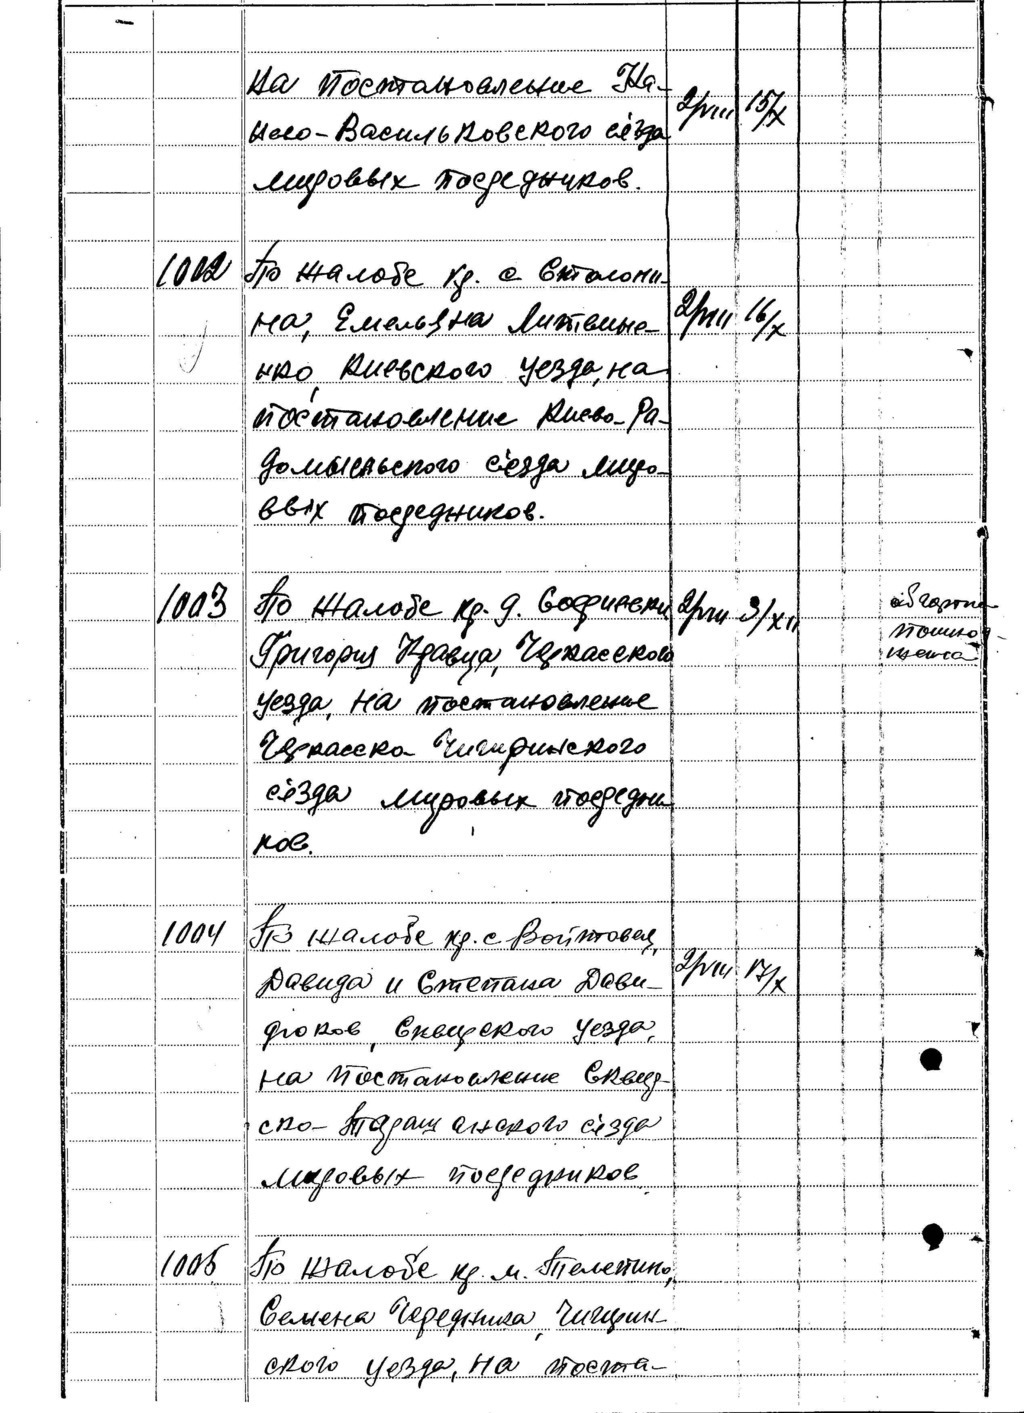 на постановление Ка-
нево-Васильковского съезда
мировых посредников.
2/VIII 15/X
1002 По жалобе кр. с. Столони-
на, Емельяна Литвине-
2/VIII 16/X
нко, Киевского уезда, на
постановление Киево-Ра-
домысльского съезда миро-
вых посредников.
1003 По жалобе кр. д. Софиевки 2/VIII 3/XII
Григория Кравца, Черкасского
уезда, на постановление
Черкасско Чигиринского
съезда мировых посредни
ков.
1004 По жалобе кр. с. Войтовец,
Давида и Степана Дави-
2/VIII 17/X
дюков, Сквирского уезда,
на постановление Сквир-
ско-Таращанского съезда
мировых посредников
1005 По жалобе кр. м. Телепино,
Семена Чередника, Чигирин-
ского уезда, на поста-